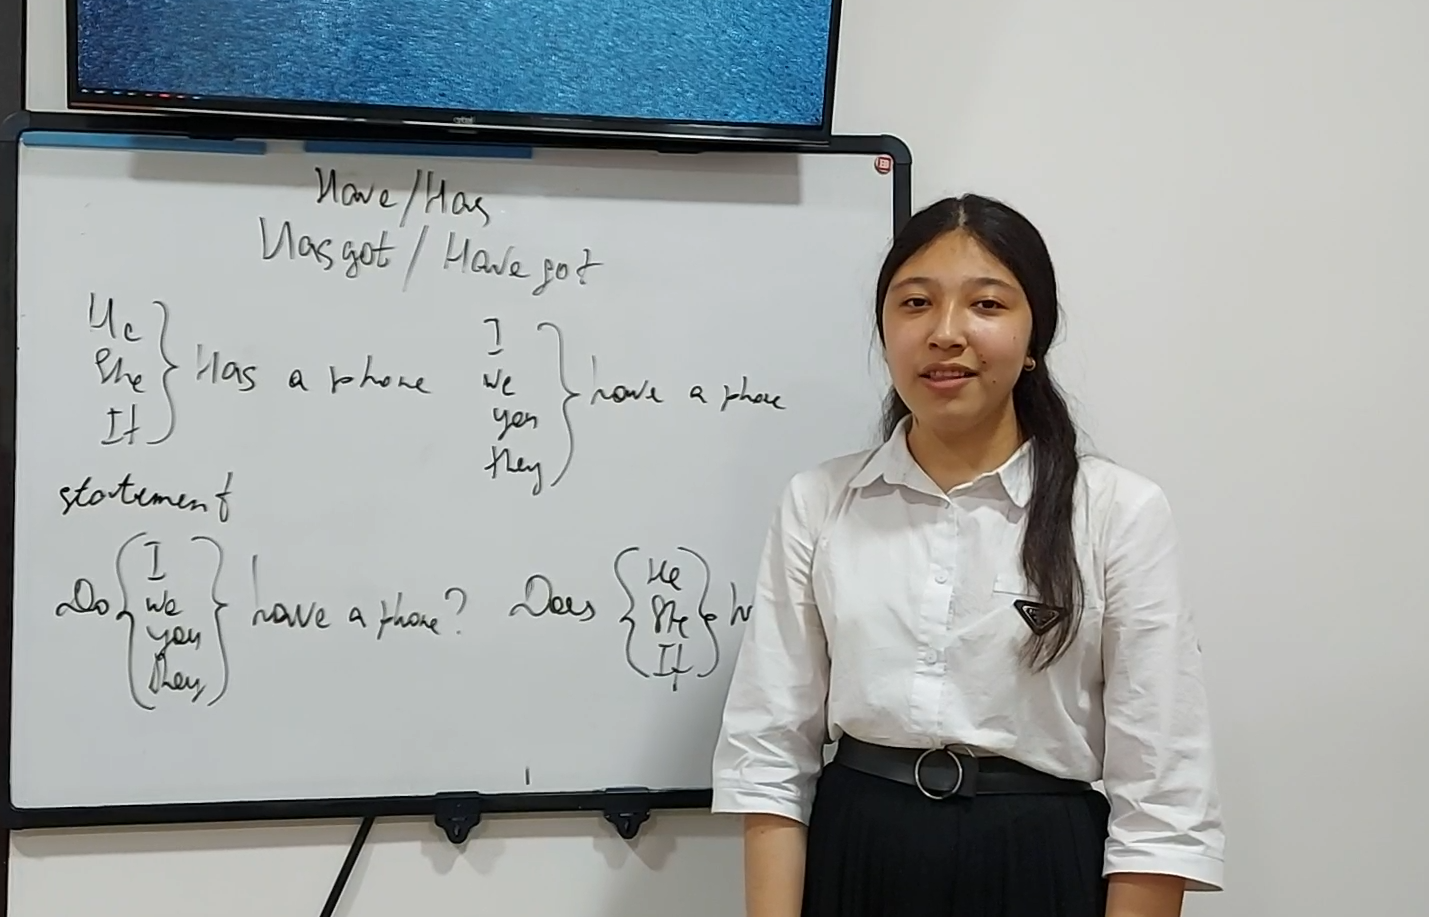 Have/Has
Has got / Have got
He
She
It
Has a phone
I
we
you
they
have a phone
statement
Do
I
we
you
they
have a phone?
Does
He
She
It